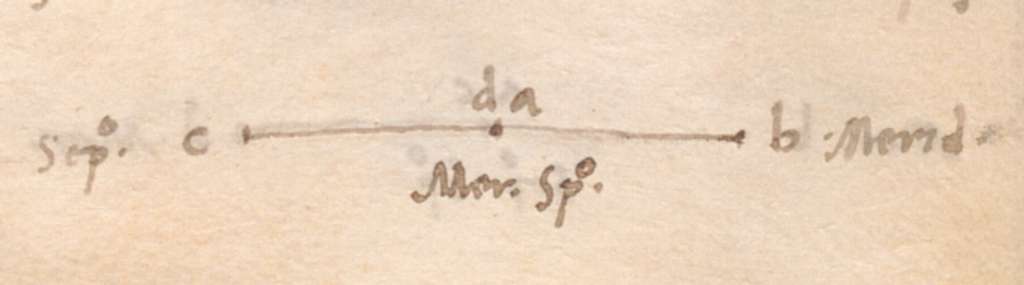 d a
Sep.º c b Merid.
Mer. Sp.º